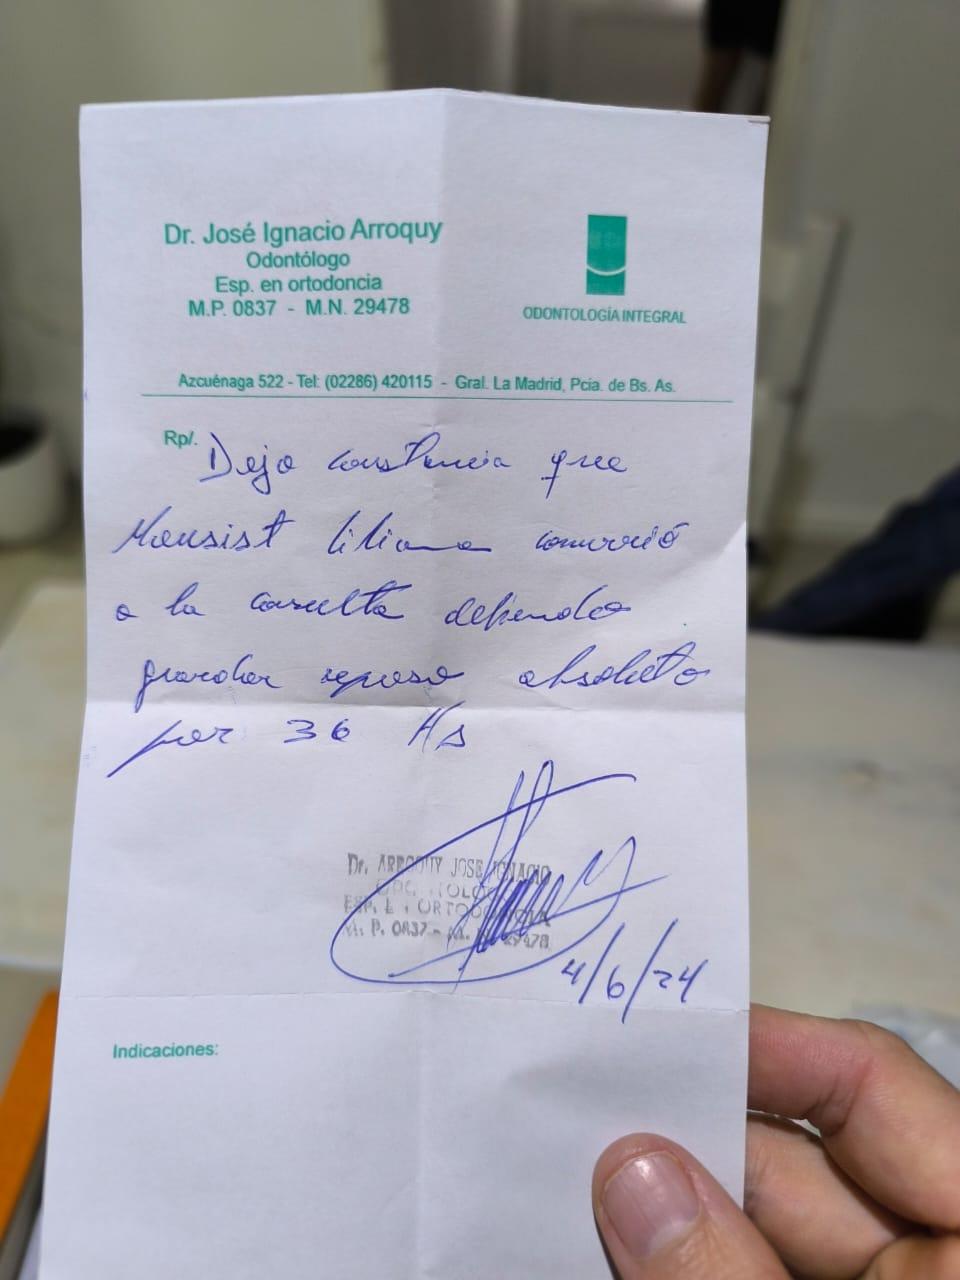 Dr. José Ignacio Arroquy
Odontólogo
Esp. en ortodoncia
M.P. 0837 - M.N. 29478
ODONTOLOGÍA INTEGRAL
Azcuénaga 522 - Tel: (02286) 420115 - Gral. La Madrid, Pcia. de Bs. As.
Rp/. Dejo constancia que
liliana concurrió
a la consulta debiendo
guardar reposo absoluto
por 36 Hs
Dr. ARROQUY JOSE IGNACIO
ORTODONCIA
M. P. 0837 - M. N. 29478
4/6/24
Indicaciones: